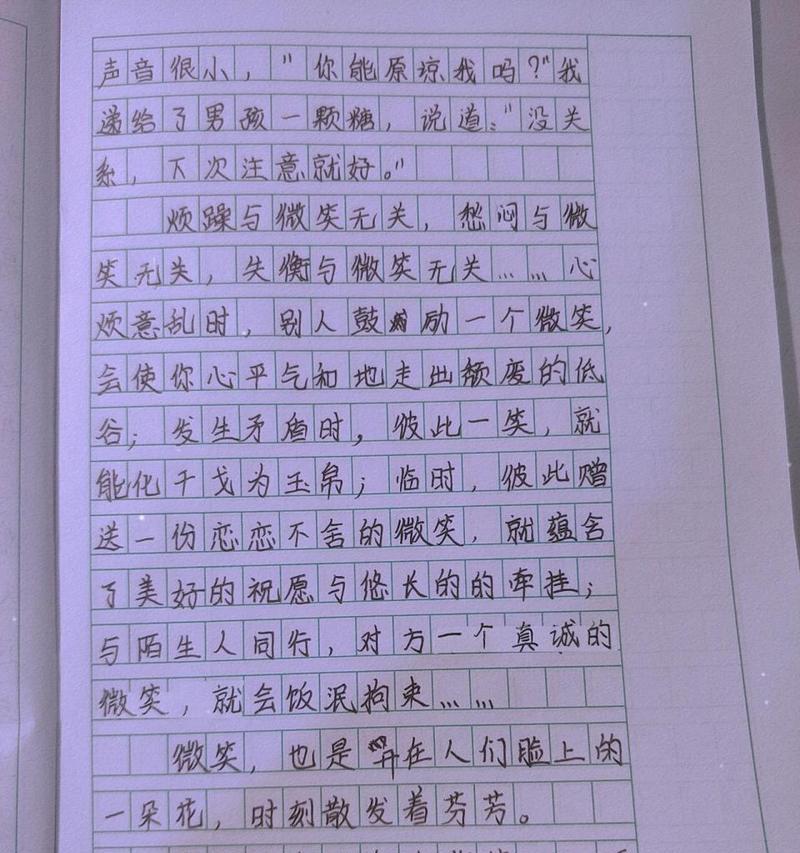 声音很小，"你能原琼我吗？"我
递给了男孩一颗糖，说道："没关
系，下次注意就好。"
烦躁与微笑无关，愁闷与微
笑无关，失衡与微笑无关……心
烦意乱时，别人鼓励一个微笑，
会使你心平气和地走出颓废的低
谷；发生矛盾时，彼此一笑，就
能化干戈为玉帛；临时，彼此赠
送一份恋恋不舍的微笑，就蕴含
了美好的祝愿与悠长的的牵挂；
与陌生人同行，对方一个真诚的
微笑，就会饭泯拘束……
微笑，也是开在人们脸上的
一朵花，时刻散发着芬芳。